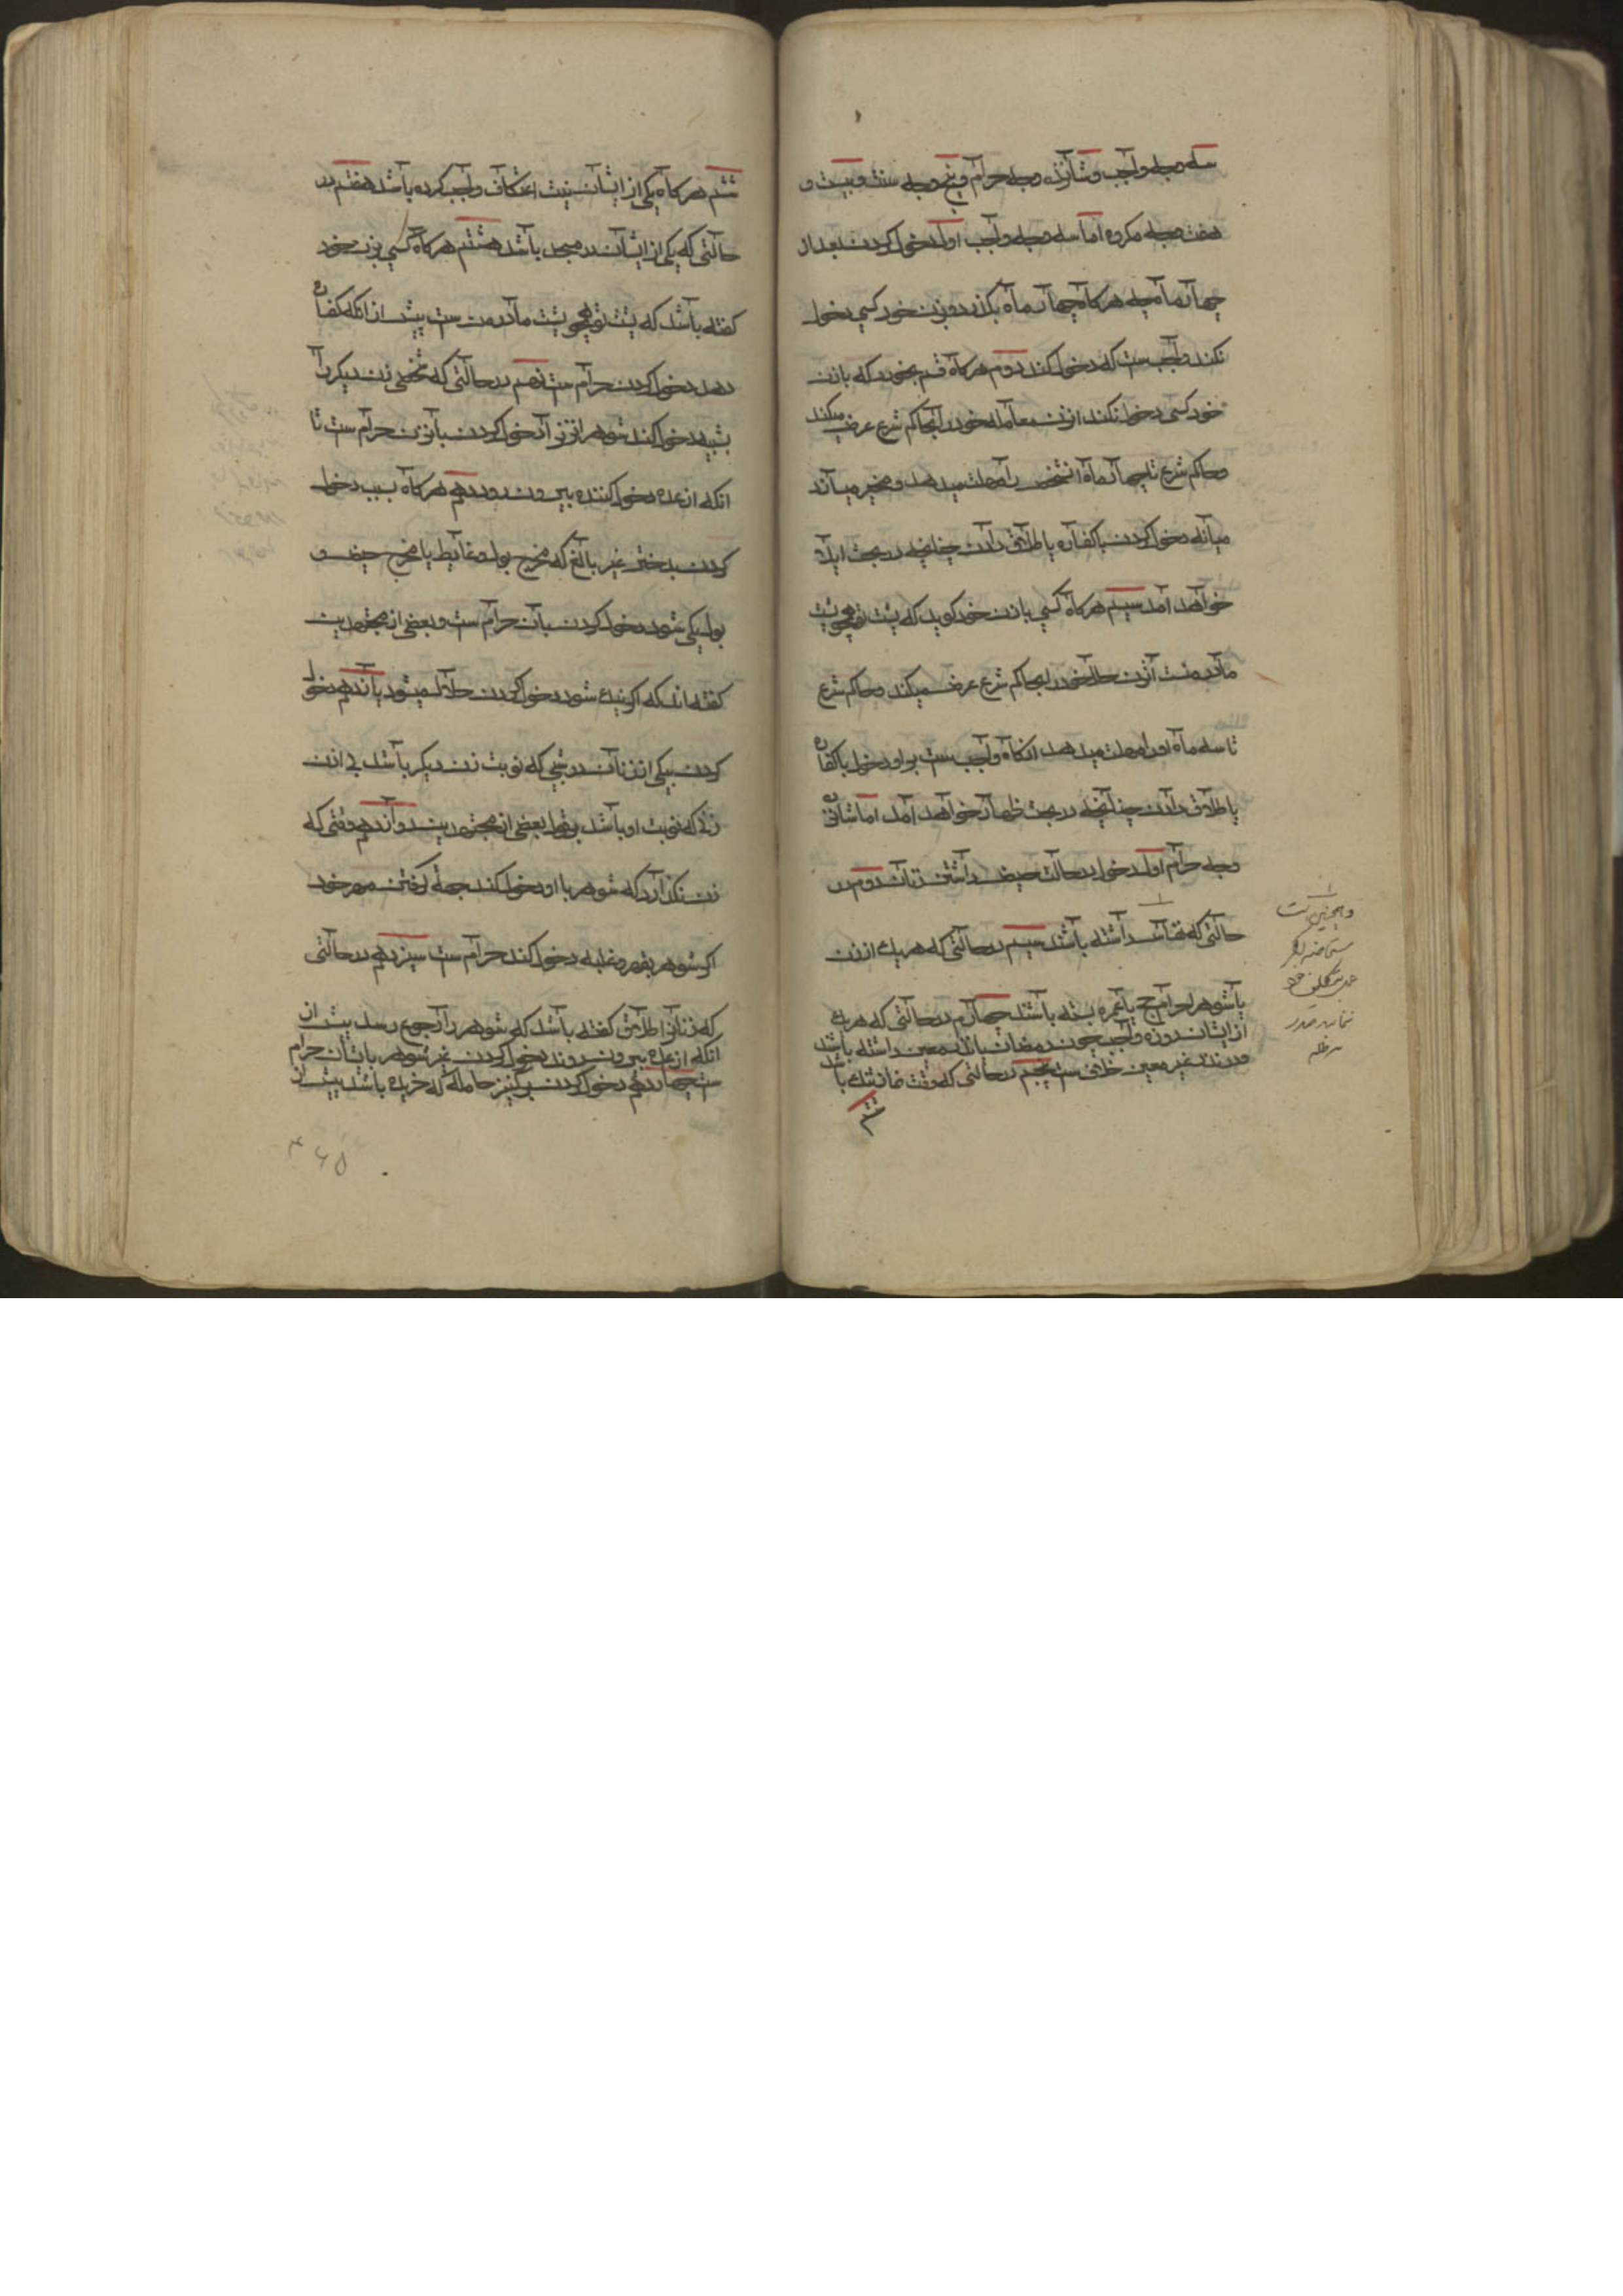 سه وجه واجب و شانزده وجه حرام و پنج وجه سنت و بیست و
هفت وجه مکروه اما سه وجه واجب اول دخول کردن بعد از
چهار ماه چه هرکاه چهار ماه بکذرد و بزن خود کسی دخول
نکند واجب ست که دخول کند دوم هرکاه قسم بخورد که با زن
خود کسی دخول نکند انزن معامله خود را بحاکم شرع عرض میکند
و حاکم شرع تا چهار ماه انشخص را مهلت میدهد و مخیر میسازد
میانه دخول کردن با کفاره یا طلاق دادن چنانچه در بحث ایلا
خواهد آمد سیم هرکاه کسی بازن خود کوید که پشت تو همچو پشت
مادر منست آنزن حال خود را بحاکم شرع عرض میکند و حاکم شرع
تا سه ماه او را مهلت میدهد انکاه واجب ست بر او دخول با کفاره
یا طلاق دادن چنانچه در بحث ظهار خواهد آمد اما شانزده
وجه حرام اول دخول در حالت حیض داشتن زنان دوم در
حالتی که نفاس داشته باشند سیم در حالتی که هر یک از زن
یا شوهر احرام حج یا عمره بسته باشند چهارم در حالتی که هر یک
از ایشان روزه واجب چون رمضان یا نذر معین داشته باشند
و در نذر غیر معین خلاف ست پنجم در حالتی که وقت نماز تنک باشد
ششم
و همچنین است
ششم هرکاه یکی از ایشان نیت اعتکاف واجب کرده باشد هفتم در
حالتی که یکی از ایشان در مسجد باشد هشتم هرکاه کسی بزن خود
کفته باشد که پشت تو همچو پشت مادر من ست پیش از انکه کفاره
دهد دخول کردن حرام ست نهم در حالتی که شخصی زن دیکر را
بشبهه دخول کند شوهر انزن را دخول کردن بآنزن حرام ست تا
انکه از عده دخول کننده بیرون رود دهم هرکاه بسبب دخول
کردن بدختر غیر بالغ که مخرج بول و غایط یا مخرج حیض و
بول یکی شود دخول کردن بآن حرام ست و بعضی از مجتهدین
کفته اند که اکر نیک شود دخول کردن حلال میشود یازدهم دخول
کردن بیکی از زنان در شبی که نوبت زن دیکر باشد بی اذن
زنی که نوبت او باشد بقول بعضی از مجتهدین دوازدهم وقتی که
زن نکذارد که شوهر با او دخول کند جهة کرفتن مهر خود
اکر شوهر بقهر و غلبه دخول کند حرام ست سیزدهم در حالتی
که زنانرا طلاق کفته باشد که شوهر را رجوع رسد پیش از
انکه از عده بیرون روند دخول کردن غیر شوهر بایشان حرام
ست چهاردهم دخول کردن بر کنیز حامله که خریده باشد پیش از